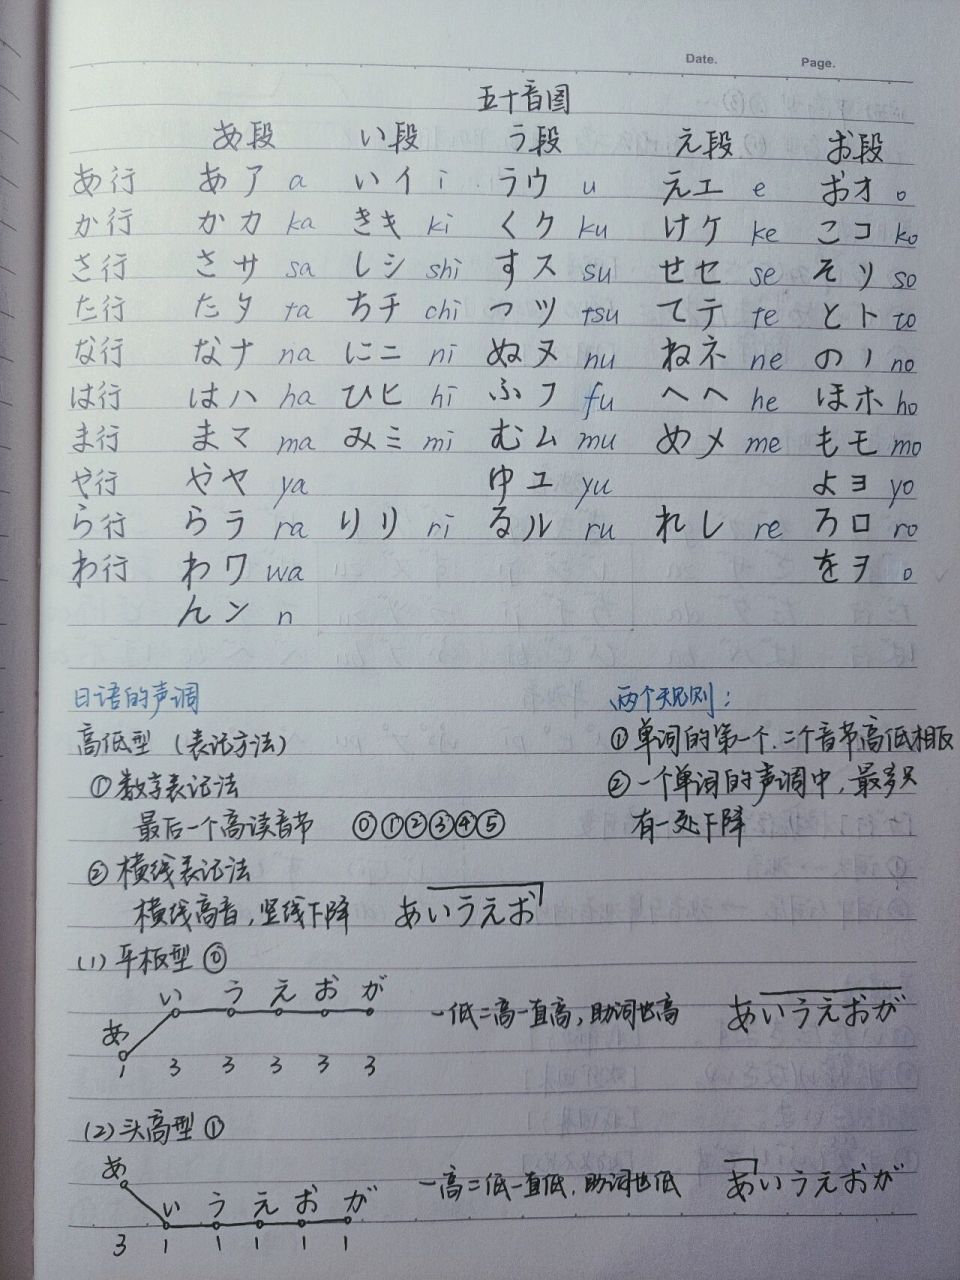 Date. Page.
五十音图
あ段 い段 う段 え段 お段
あ行 あ ア a い イ i う ウ u え エ e お オ o
か行 か カ ka き キ ki く ク ku け ケ ke こ コ ko
さ行 さ サ sa し シ shi す ス su せ セ se そ ソ so
た行 た タ ta ち チ chi つ ツ tsu て テ te と ト to
な行 な ナ na に ニ ni ぬ ヌ nu ね ネ ne の ノ no
は行 は ハ ha ひ ヒ hi ふ フ fu へ ヘ he ほ ホ ho
ま行 ま マ ma み ミ mi む ム mu め メ me も モ mo
や行 や ヤ ya ゆ ユ yu よ ヨ yo
ら行 ら ラ ra り リ ri る ル ru れ レ re ろ ロ ro
わ行 わ ワ wa を ヲ o
ん ン n
日语的声调
高低型(表记方法)
①数字表记法
最后一个高读音节 ⓪①②③④⑤
②横线表记法
横线高音,竖线下降 あいうえお
两个规则:
①单词的第一个.二个音节高低相反
②一个单词的声调中,最多只
有一处下降
(1)平板型⓪
い う え お が
あ
1 3 3 3 3 3
一低二高一直高,助词也高 あいうえおが
(2)头高型①
あ
い う え お が
3 1 1 1 1 1
一高二低一直低.助词也低 あいうえおが